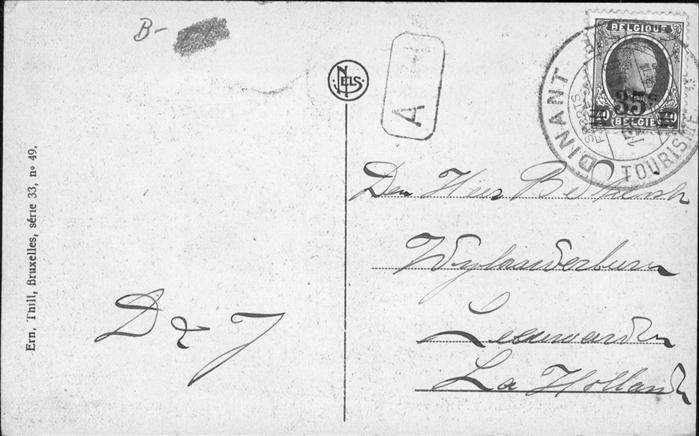 B-
NELS
A
BELGIQUE
35c
40 40
BELGIË
DINANT
TOURISME
Ern. Thill, Bruxelles, série 33, nº 49.
Den Heer
Wylanderburen
Leeuwarden
La Holland
D & J